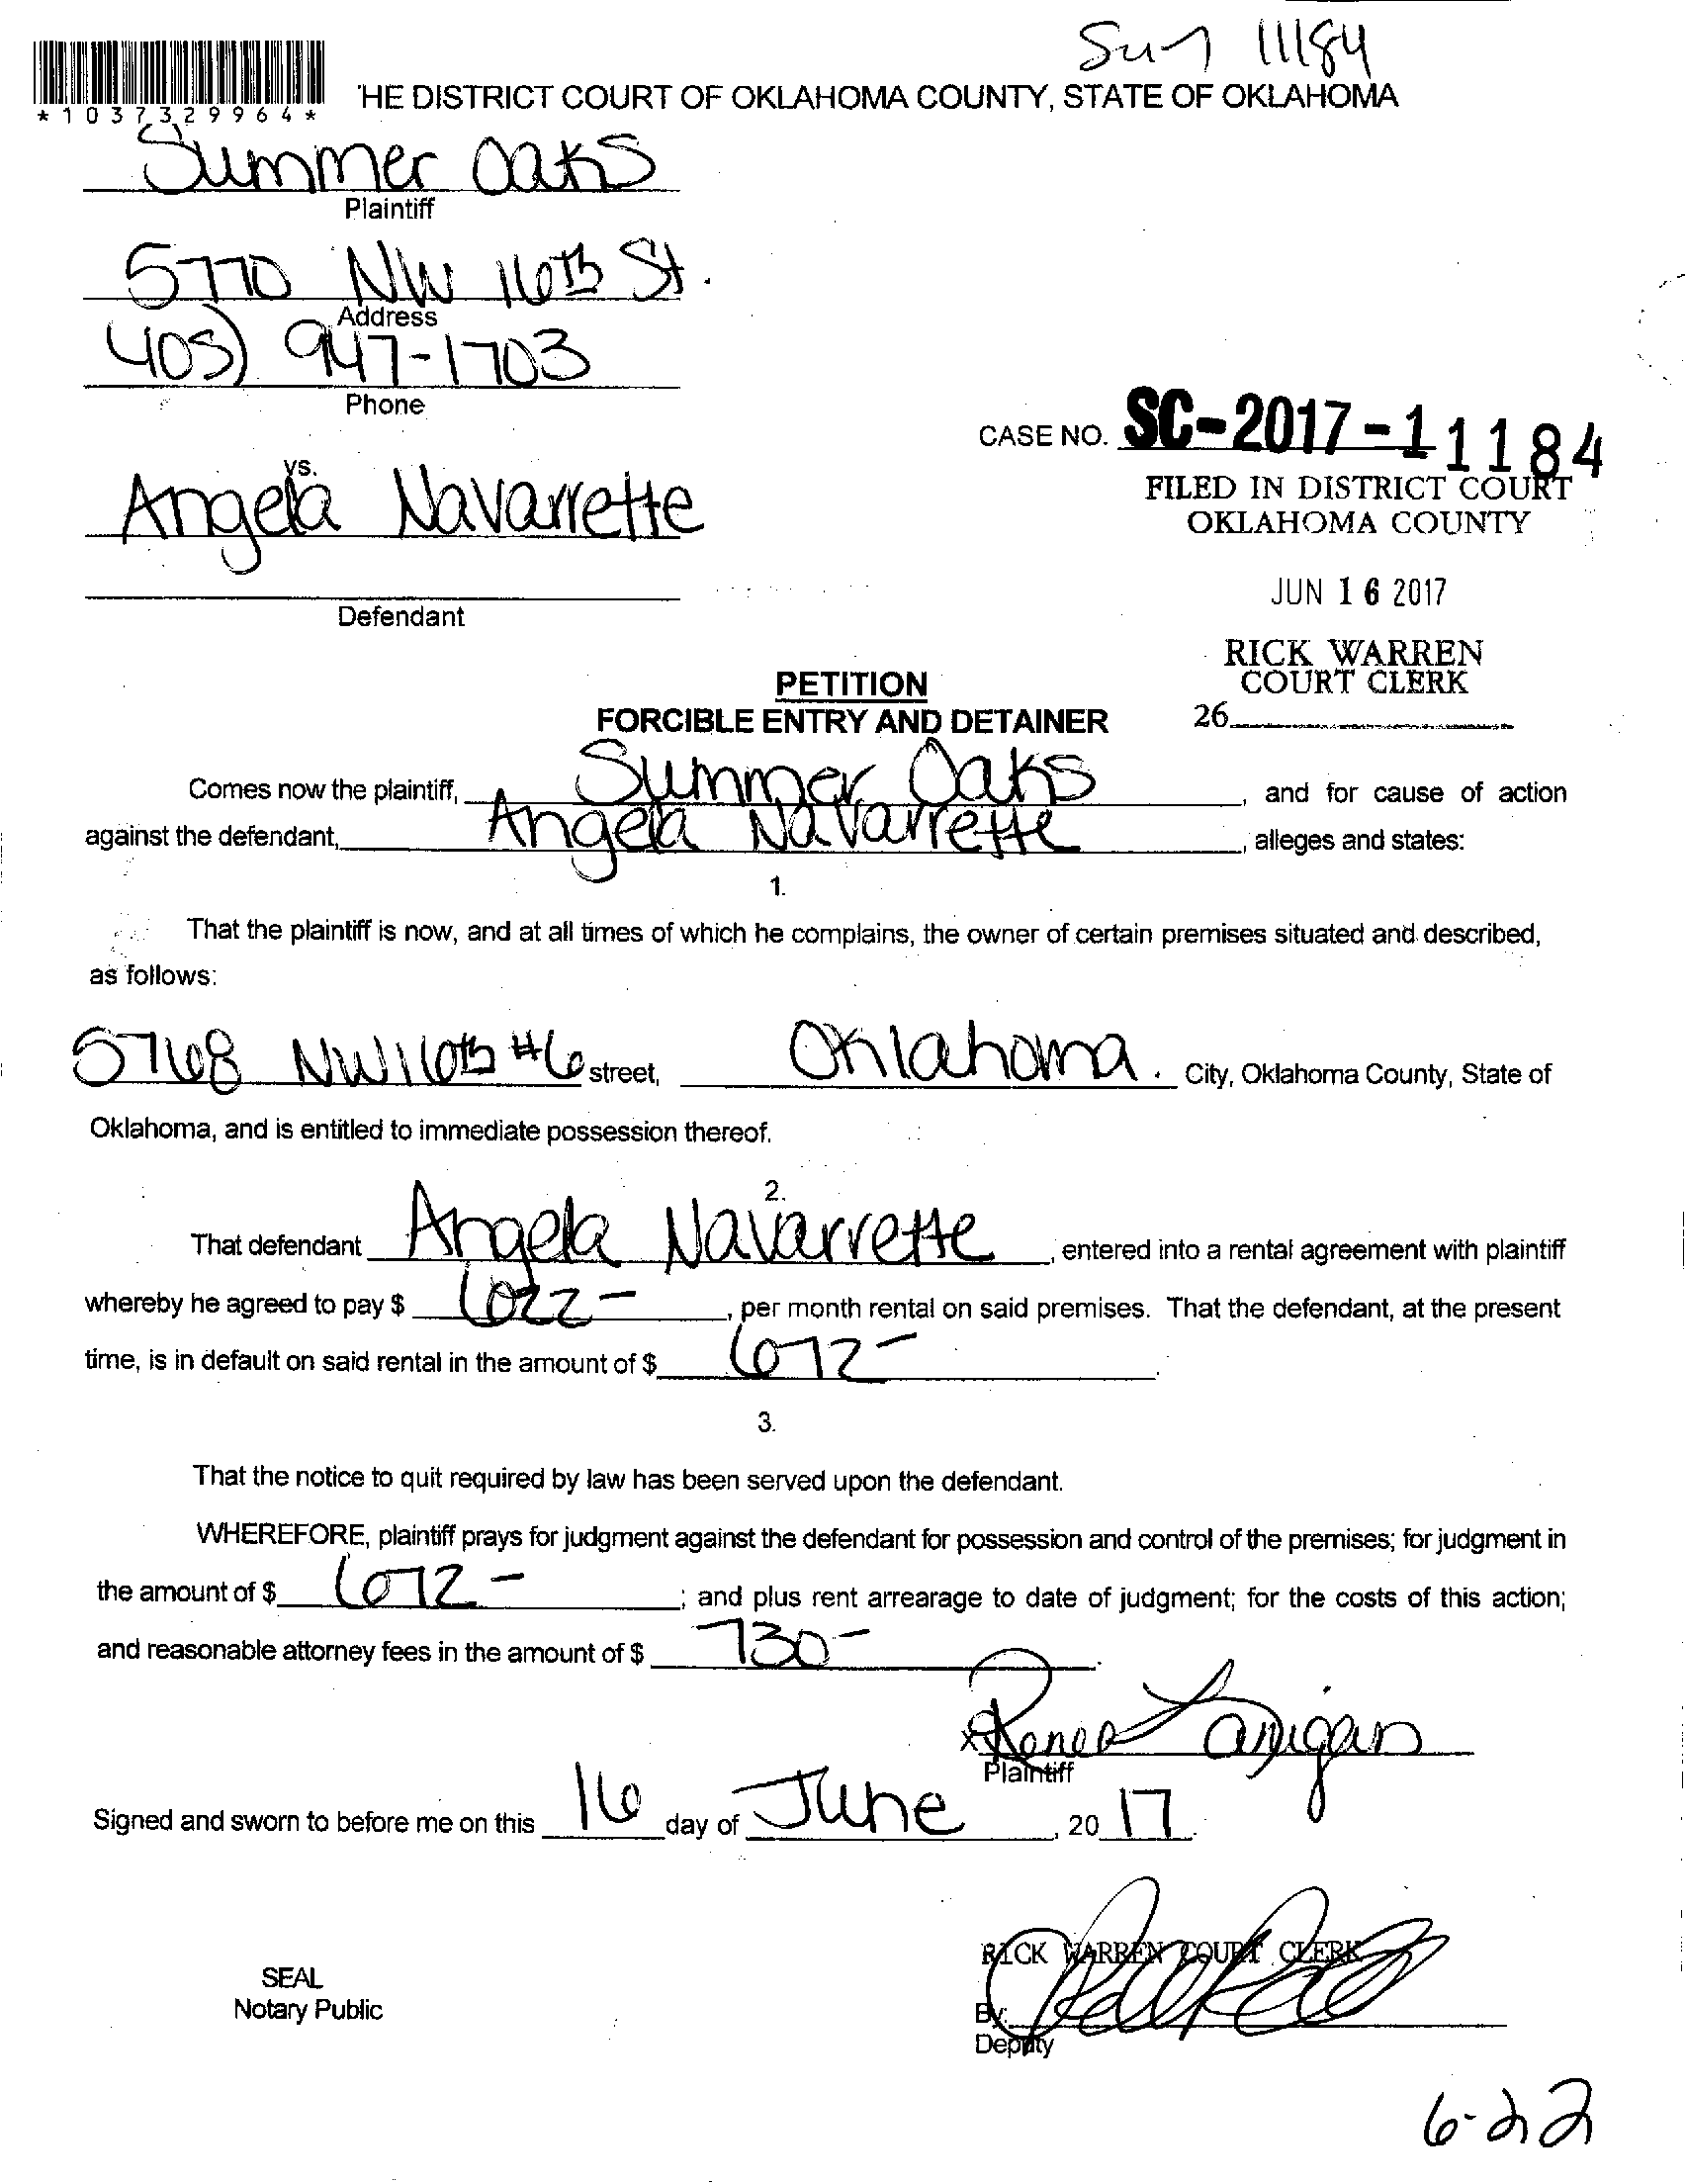 Sum 11184
*1037329964*
'HE DISTRICT COURT OF OKLAHOMA COUNTY, STATE OF OKLAHOMA
Summer Oaks
Plaintiff
5770 NW 16th St.
Address
405) 947-1703
Phone
CASE NO. SC-2017-11184
vs.
FILED IN DISTRICT COURT
OKLAHOMA COUNTY
Angela Navarrette
JUN 16 2017
Defendant
RICK WARREN
COURT CLERK
26
PETITION
FORCIBLE ENTRY AND DETAINER
Comes now the plaintiff, Summer Oaks, and for cause of action
against the defendant, Angela Navarrette, alleges and states:
1.
That the plaintiff is now, and at all times of which he complains, the owner of certain premises situated and described,
as follows:
5768 NW 16th #6 street, Oklahoma. City, Oklahoma County, State of
Oklahoma, and is entitled to immediate possession thereof.
2.
That defendant Angela Navarrette, entered into a rental agreement with plaintiff
whereby he agreed to pay $ 622-, per month rental on said premises. That the defendant, at the present
time, is in default on said rental in the amount of $ 672-.
3.
That the notice to quit required by law has been served upon the defendant.
WHEREFORE, plaintiff prays for judgment against the defendant for possession and control of the premises; for judgment in
the amount of $ 672-; and plus rent arrearage to date of judgment; for the costs of this action;
and reasonable attorney fees in the amount of $ 730-.
x Renea Lanigan
Plaintiff
Signed and sworn to before me on this 16 day of June, 20 17.
RICK WARREN COURT CLERK
SEAL
Notary Public
By:
Deputy
6-22